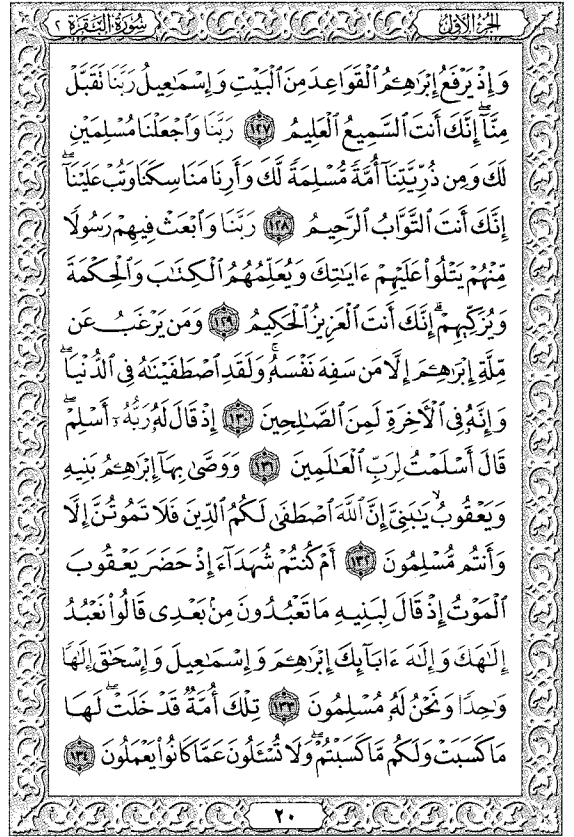 الجزء الأول
سورة البقرة ٢
وَإِذْ يَرْفَعُ إِبْرَٰهِـۧمُ ٱلْقَوَاعِدَ مِنَ ٱلْبَيْتِ وَإِسْمَٰعِيلُ رَبَّنَا تَقَبَّلْ
مِنَّآ ۖ إِنَّكَ أَنتَ ٱلسَّمِيعُ ٱلْعَلِيمُ ١٢٧ رَبَّنَا وَٱجْعَلْنَا مُسْلِمَيْنِ
لَكَ وَمِن ذُرِّيَّتِنَآ أُمَّةً مُّسْلِمَةً لَّكَ وَأَرِنَا مَنَاسِكَنَا وَتُبْ عَلَيْنَآ ۖ
إِنَّكَ أَنتَ ٱلتَّوَّابُ ٱلرَّحِيمُ ١٢٨ رَبَّنَا وَٱبْعَثْ فِيهِمْ رَسُولًا
مِّنْهُمْ يَتْلُوا۟ عَلَيْهِمْ ءَايَٰتِكَ وَيُعَلِّمُهُمُ ٱلْكِتَٰبَ وَٱلْحِكْمَةَ
وَيُزَكِّيهِمْ ۚ إِنَّكَ أَنتَ ٱلْعَزِيزُ ٱلْحَكِيمُ ١٢٩ وَمَن يَرْغَبُ عَن
مِّلَّةِ إِبْرَٰهِـۧمَ إِلَّا مَن سَفِهَ نَفْسَهُۥ ۚ وَلَقَدِ ٱصْطَفَيْنَٰهُ فِى ٱلدُّنْيَا ۖ
وَإِنَّهُۥ فِى ٱلْءَاخِرَةِ لَمِنَ ٱلصَّٰلِحِينَ ١٣٠ إِذْ قَالَ لَهُۥ رَبُّهُۥٓ أَسْلِمْ ۖ
قَالَ أَسْلَمْتُ لِرَبِّ ٱلْعَٰلَمِينَ ١٣١ وَوَصَّىٰ بِهَآ إِبْرَٰهِـۧمُ بَنِيهِ
وَيَعْقُوبُ يَٰبَنِىَّ إِنَّ ٱللَّهَ ٱصْطَفَىٰ لَكُمُ ٱلدِّينَ فَلَا تَمُوتُنَّ إِلَّا
وَأَنتُم مُّسْلِمُونَ ١٣٢ أَمْ كُنتُمْ شُهَدَآءَ إِذْ حَضَرَ يَعْقُوبَ
ٱلْمَوْتُ إِذْ قَالَ لِبَنِيهِ مَا تَعْبُدُونَ مِنۢ بَعْدِى قَالُوا۟ نَعْبُدُ
إِلَٰهَكَ وَإِلَٰهَ ءَابَآئِكَ إِبْرَٰهِـۧمَ وَإِسْمَٰعِيلَ وَإِسْحَٰقَ إِلَٰهًا
وَٰحِدًا وَنَحْنُ لَهُۥ مُسْلِمُونَ ١٣٣ تِلْكَ أُمَّةٌ قَدْ خَلَتْ ۖ لَهَا
مَا كَسَبَتْ وَلَكُم مَّا كَسَبْتُمْ ۖ وَلَا تُسْـَٔلُونَ عَمَّا كَانُوا۟ يَعْمَلُونَ ١٣٤
٢٠